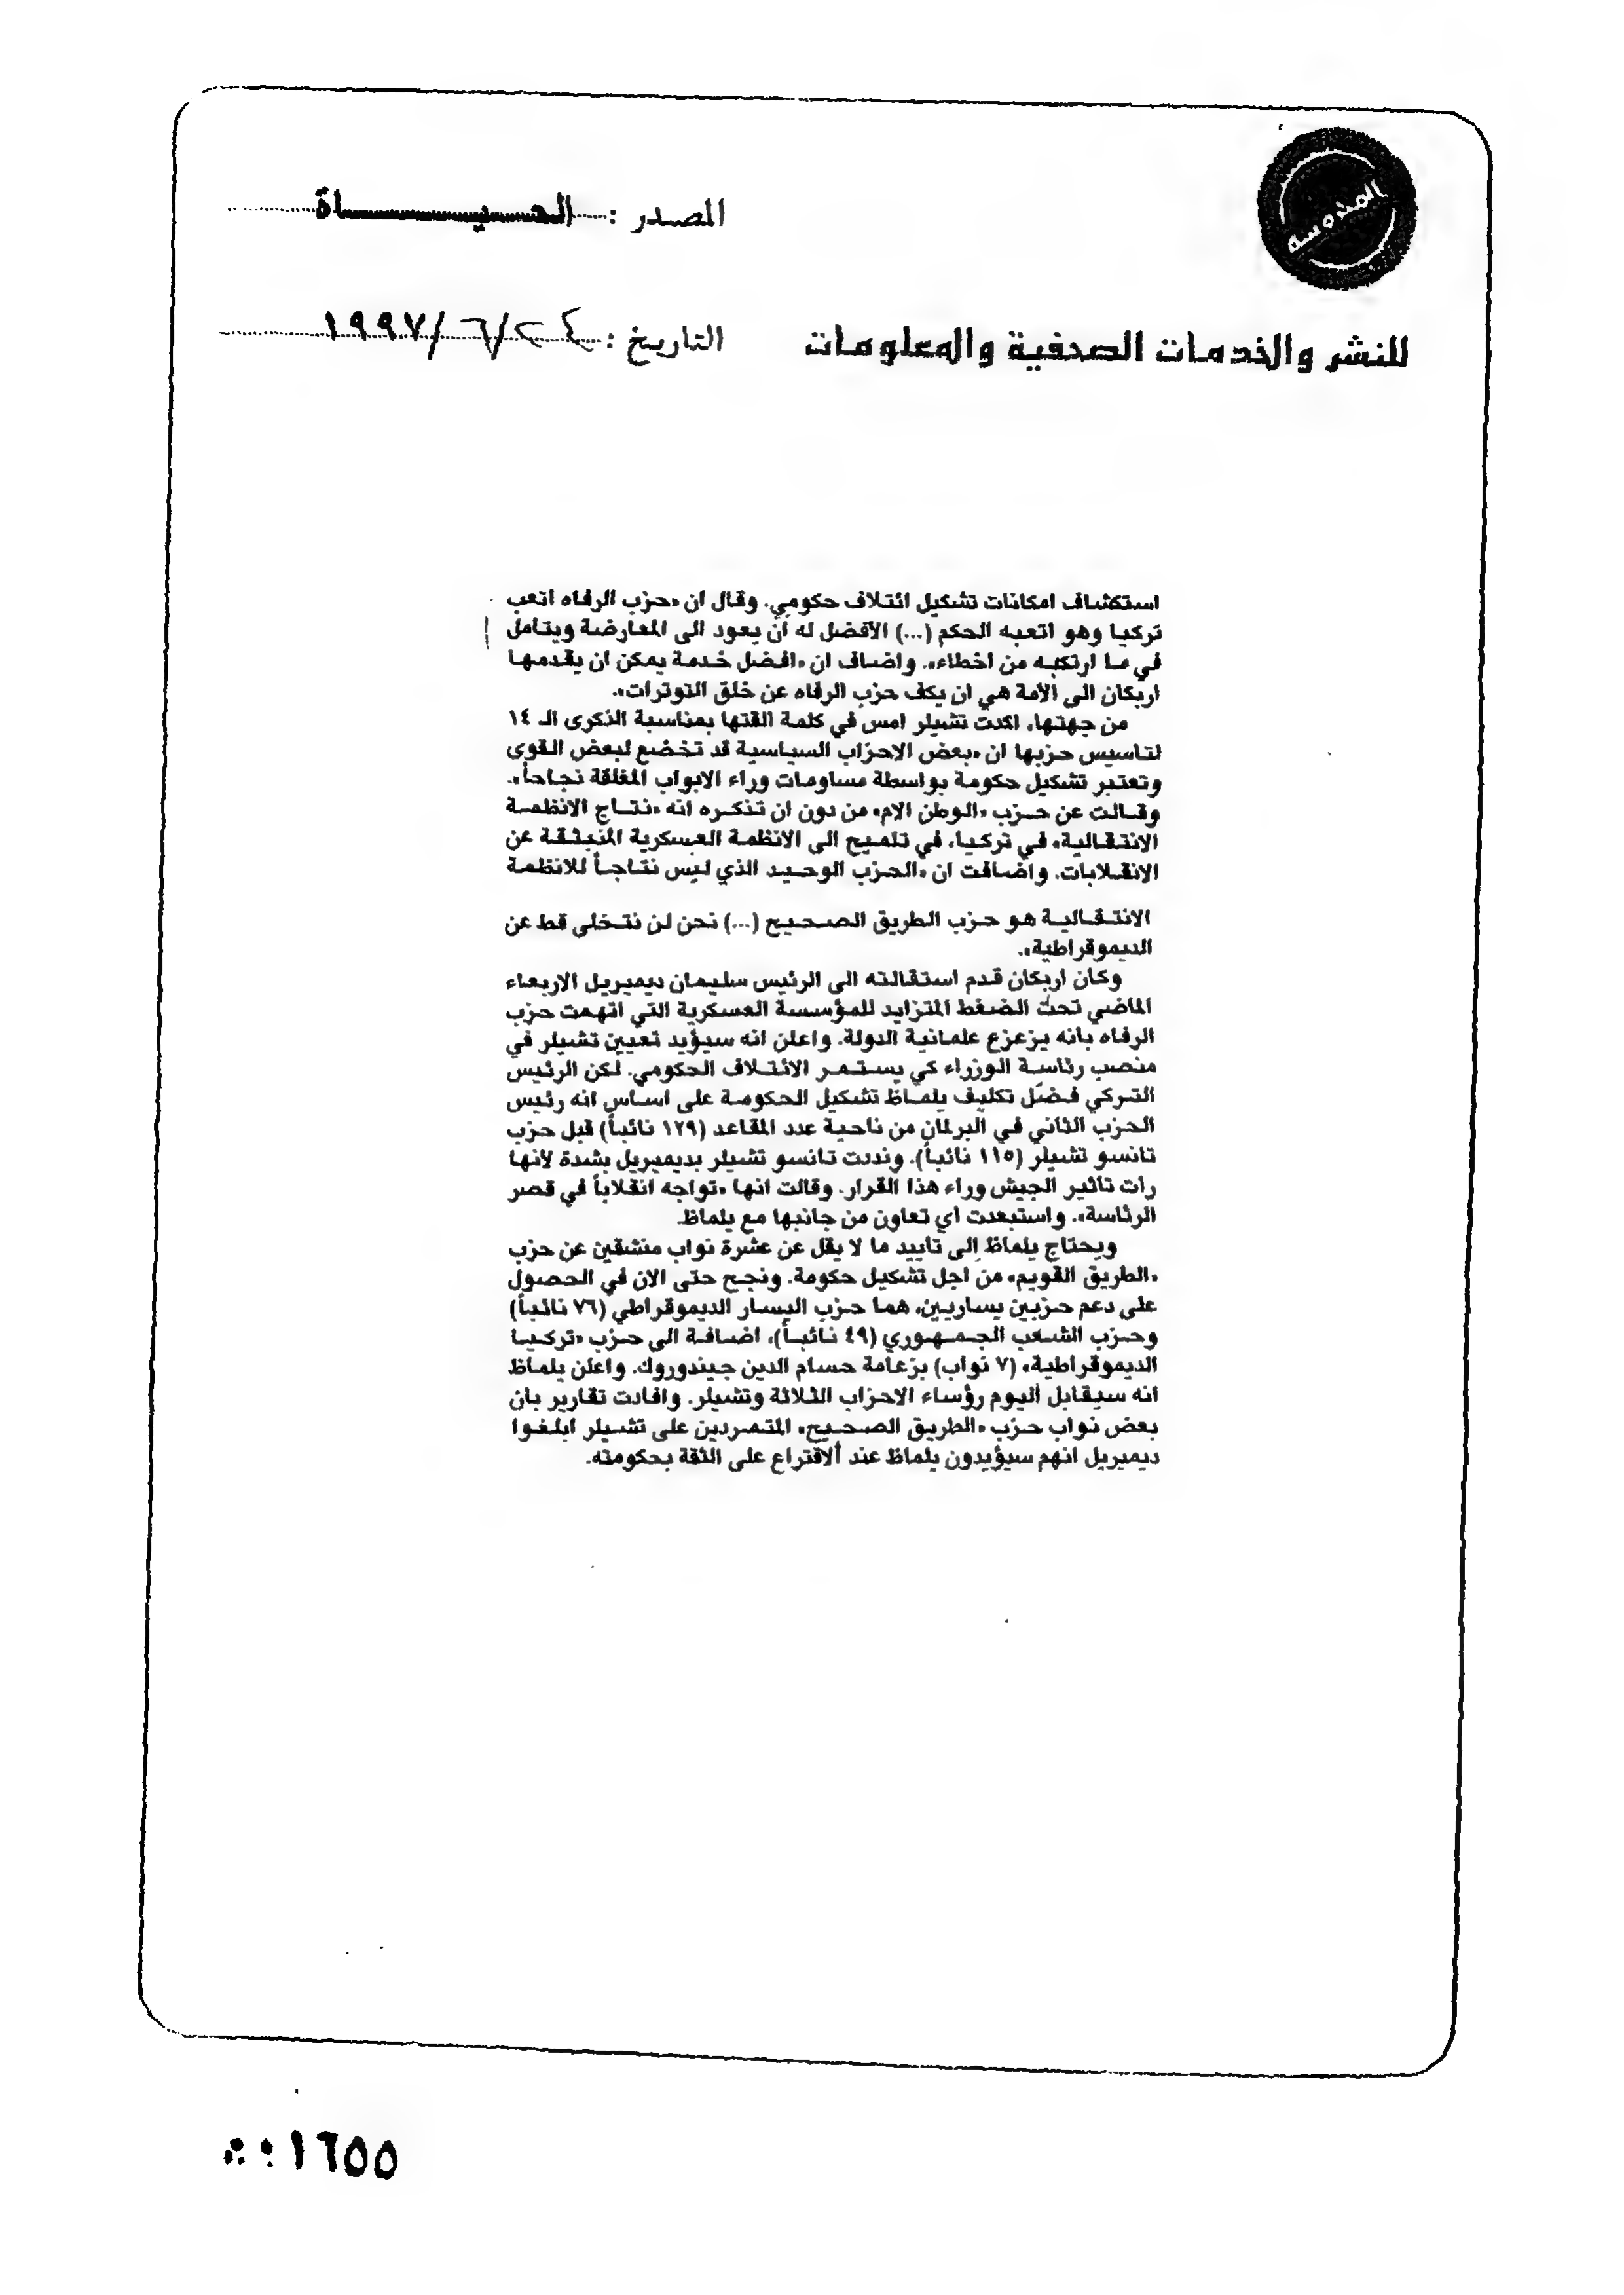 المحروسة
المصدر : الحيـــــاة
للنشر والخدمات الصحفية والمعلومات
التاريخ : ٢٤/٦/١٩٩٧
استكشاف امكانات تشكيل ائتلاف حكومي. وقال ان «حزب الرفاه اتعب
تركيا وهو اتعبه الحكم (...) الأفضل له أن يعود الى المعارضة ويتأمل
في ما ارتكبه من اخطاء». واضاف ان «افضل خدمة يمكن ان يقدمها
اربكان الى الأمة هي ان يكف حزب الرفاه عن خلق التوترات».
من جهتها، اكدت تشيلر امس في كلمة القتها بمناسبة الذكرى الـ ١٤
لتاسيس حزبها ان «بعض الاحزاب السياسية قد تخضع لبعض القوى
وتعتبر تشكيل حكومة بواسطة مساومات وراء الابواب المغلقة نجاحاً».
وقالت عن حزب «الوطن الام» من دون ان تذكره انه «نتاج الانظمة
الانتقالية» في تركيا، في تلميح الى الانظمة العسكرية المنبثقة عن
الانقلابات. واضافت ان «الحزب الوحيد الذي ليس نتاجاً للانظمة
الانتقالية هو حزب الطريق الصحيح (...) نحن لن نتخلى قط عن
الديموقراطية».
وكان اربكان قدم استقالته الى الرئيس سليمان ديميريل الاربعاء
الماضي تحت الضغط المتزايد للمؤسسة العسكرية التي اتهمت حزب
الرفاه بانه يزعزع علمانية الدولة. واعلن انه سيؤيد تعيين تشيلر في
منصب رئاسة الوزراء كي يستمر الائتلاف الحكومي. لكن الرئيس
التركي فضّل تكليف يلماظ تشكيل الحكومة على اساس انه رئيس
الحزب الثاني في البرلمان من ناحية عدد المقاعد (١٢٩ نائباً) قبل حزب
تانسو تشيلر (١١٥ نائباً). ونددت تانسو تشيلر بديميريل بشدة لأنها
رات تاثير الجيش وراء هذا القرار. وقالت انها «تواجه انقلاباً في قصر
الرئاسة». واستبعدت اي تعاون من جانبها مع يلماظ.
ويحتاج يلماظ إلى تاييد ما لا يقل عن عشرة نواب منشقين عن حزب
«الطريق القويم» من اجل تشكيل حكومة. ونجح حتى الان في الحصول
على دعم حزبين يساريين، هما حزب اليسار الديموقراطي (٧٦ نائباً)
وحزب الشعب الجمهوري (٤٩ نائباً)، اضافة الى حزب «تركيا
الديموقراطية» (٧ نواب) بزعامة حسام الدين جيندوروك. واعلن يلماظ
انه سيقابل اليوم رؤساء الاحزاب الثلاثة وتشيلر. وافادت تقارير بان
بعض نواب حزب «الطريق الصحيح» المتمردين على تشيلر ابلغوا
ديميريل انهم سيؤيدون يلماظ عند الاقتراع على الثقة بحكومته.
١٦٥٥